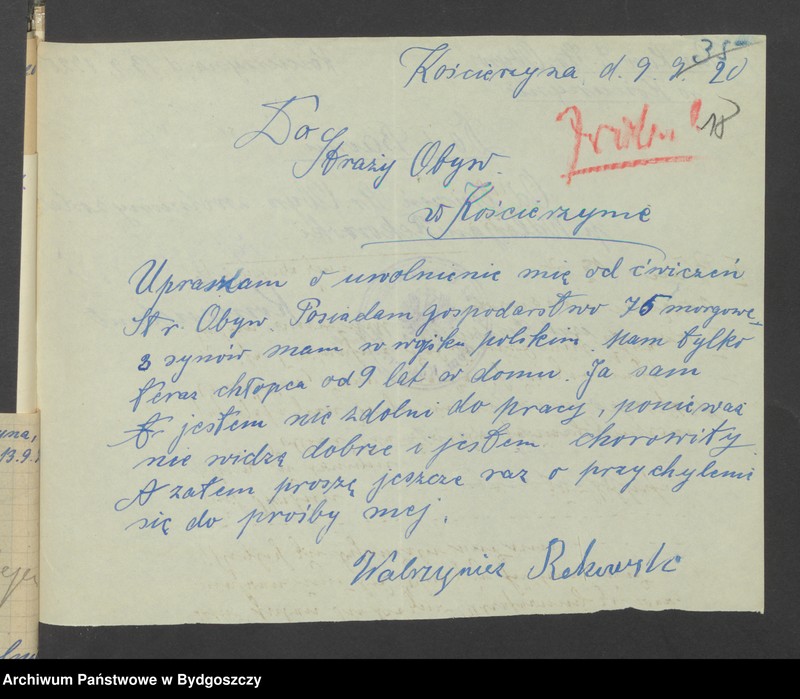 38
Kościerzyna d. 9. 9. 20
18
Do
Straży Obyw.
w Kościerzynie
Upraszam o uwolnienie mię od ćwiczeń
Str. Obyw. Posiadam gospodarstwo 75 morgowe
3 synów mam w wojsku polskim. Mam tylko
teraz chłopca od 9 lat w domu. Ja sam
jestem nie zdolni do pracy, ponieważ
nie widzę dobrze i jestem chorowity.
A zatem proszę jeszcze raz o przychylenie
się do prośby mej.
Walrzyniec Rekowski
yna,
13.9.
Archiwum Państwowe w Bydgoszczy